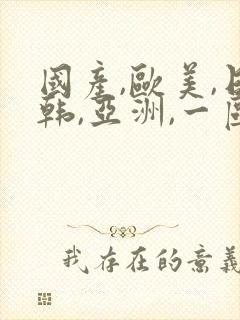 國產,歐美,日
韩,亞洲,一區
我存在的意義